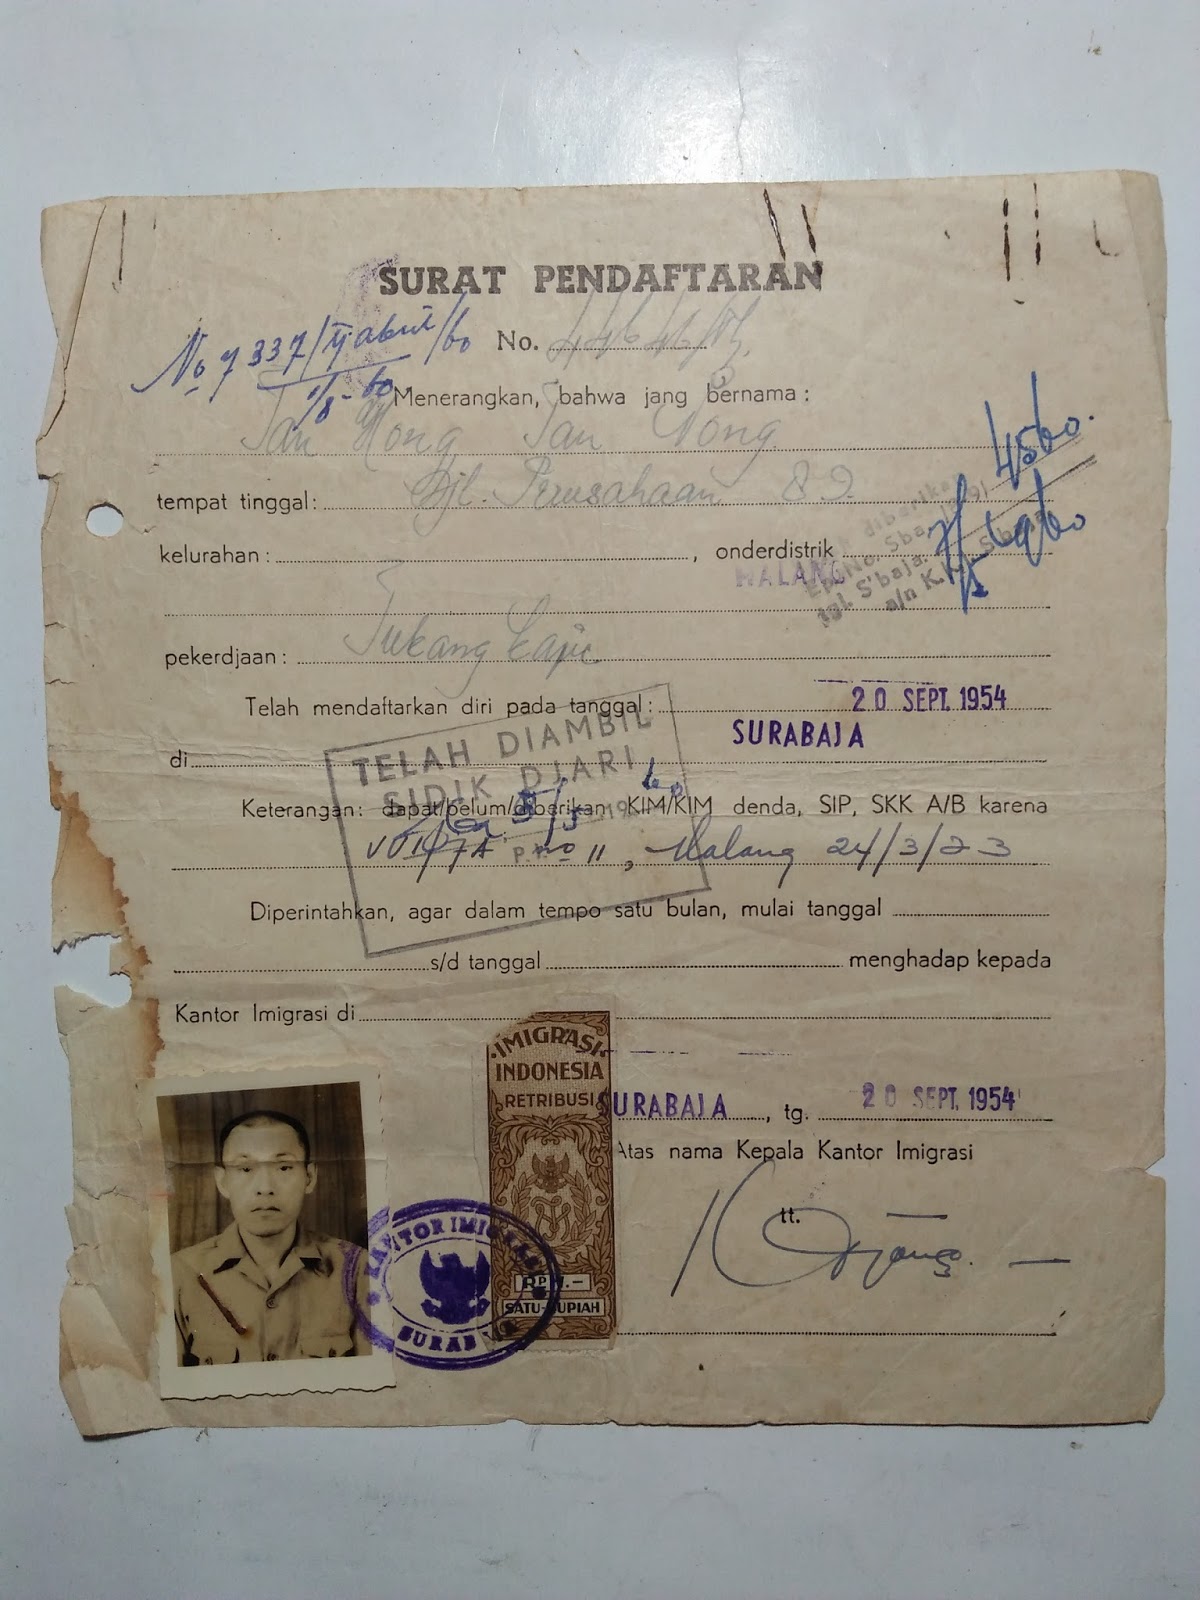 SURAT PENDAFTARAN
No. 7337/ /60
No.
1/8-60
Menerangkan, bahwa jang bernama :
Tan Hong Tan Nong
4560.
tempat tinggal: Djl. Perusahaan 89.
kelurahan : , onderdistrik
MALANG
diberikan
Sba.
tgl. S'baja.
a/n K.
pekerdjaan : Tukang kaju
Telah mendaftarkan diri pada tanggal : 20 SEPT. 1954
di SURABAJA
TELAH DIAMBIL
SIDIK DJARI
Keterangan: dapat/belum/diberikan KIM/KIM denda, SIP, SKK A/B karena
No 11, Malang 24/3/23
Diperintahkan, agar dalam tempo satu bulan, mulai tanggal
s/d tanggal menghadap kepada
Kantor Imigrasi di
IMIGRASI
INDONESIA
RETRIBUSI
RP 1.-
SATU RUPIAH
SURABAJA, tg. 20 SEPT. 1954
Atas nama Kepala Kantor Imigrasi
tt.
KANTOR IMIGRASI